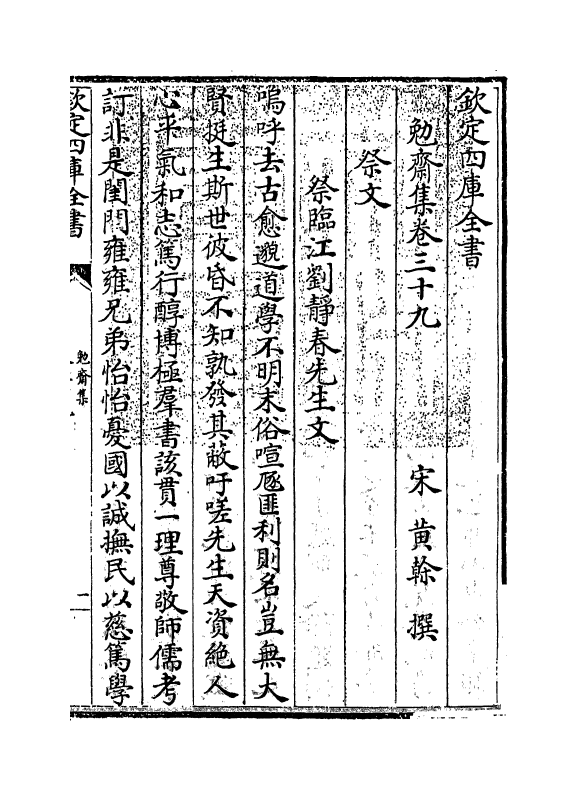 欽定四庫全書
勉齋集卷三十九
宋 黃榦 撰
祭文
祭臨江劉靜春先生文
嗚呼去古愈邈道學不明末俗喧豗匪利則名豈無大
賢挺生斯世彼昏不知孰發其蔽吁嗟先生天資絶人
心平氣和志篤行醇博極羣書該貫一理尊敬師儒考
訂非是閨門雍雍兄弟怡怡憂國以誠撫民以慈篤學
欽定四庫全書
勉齋集